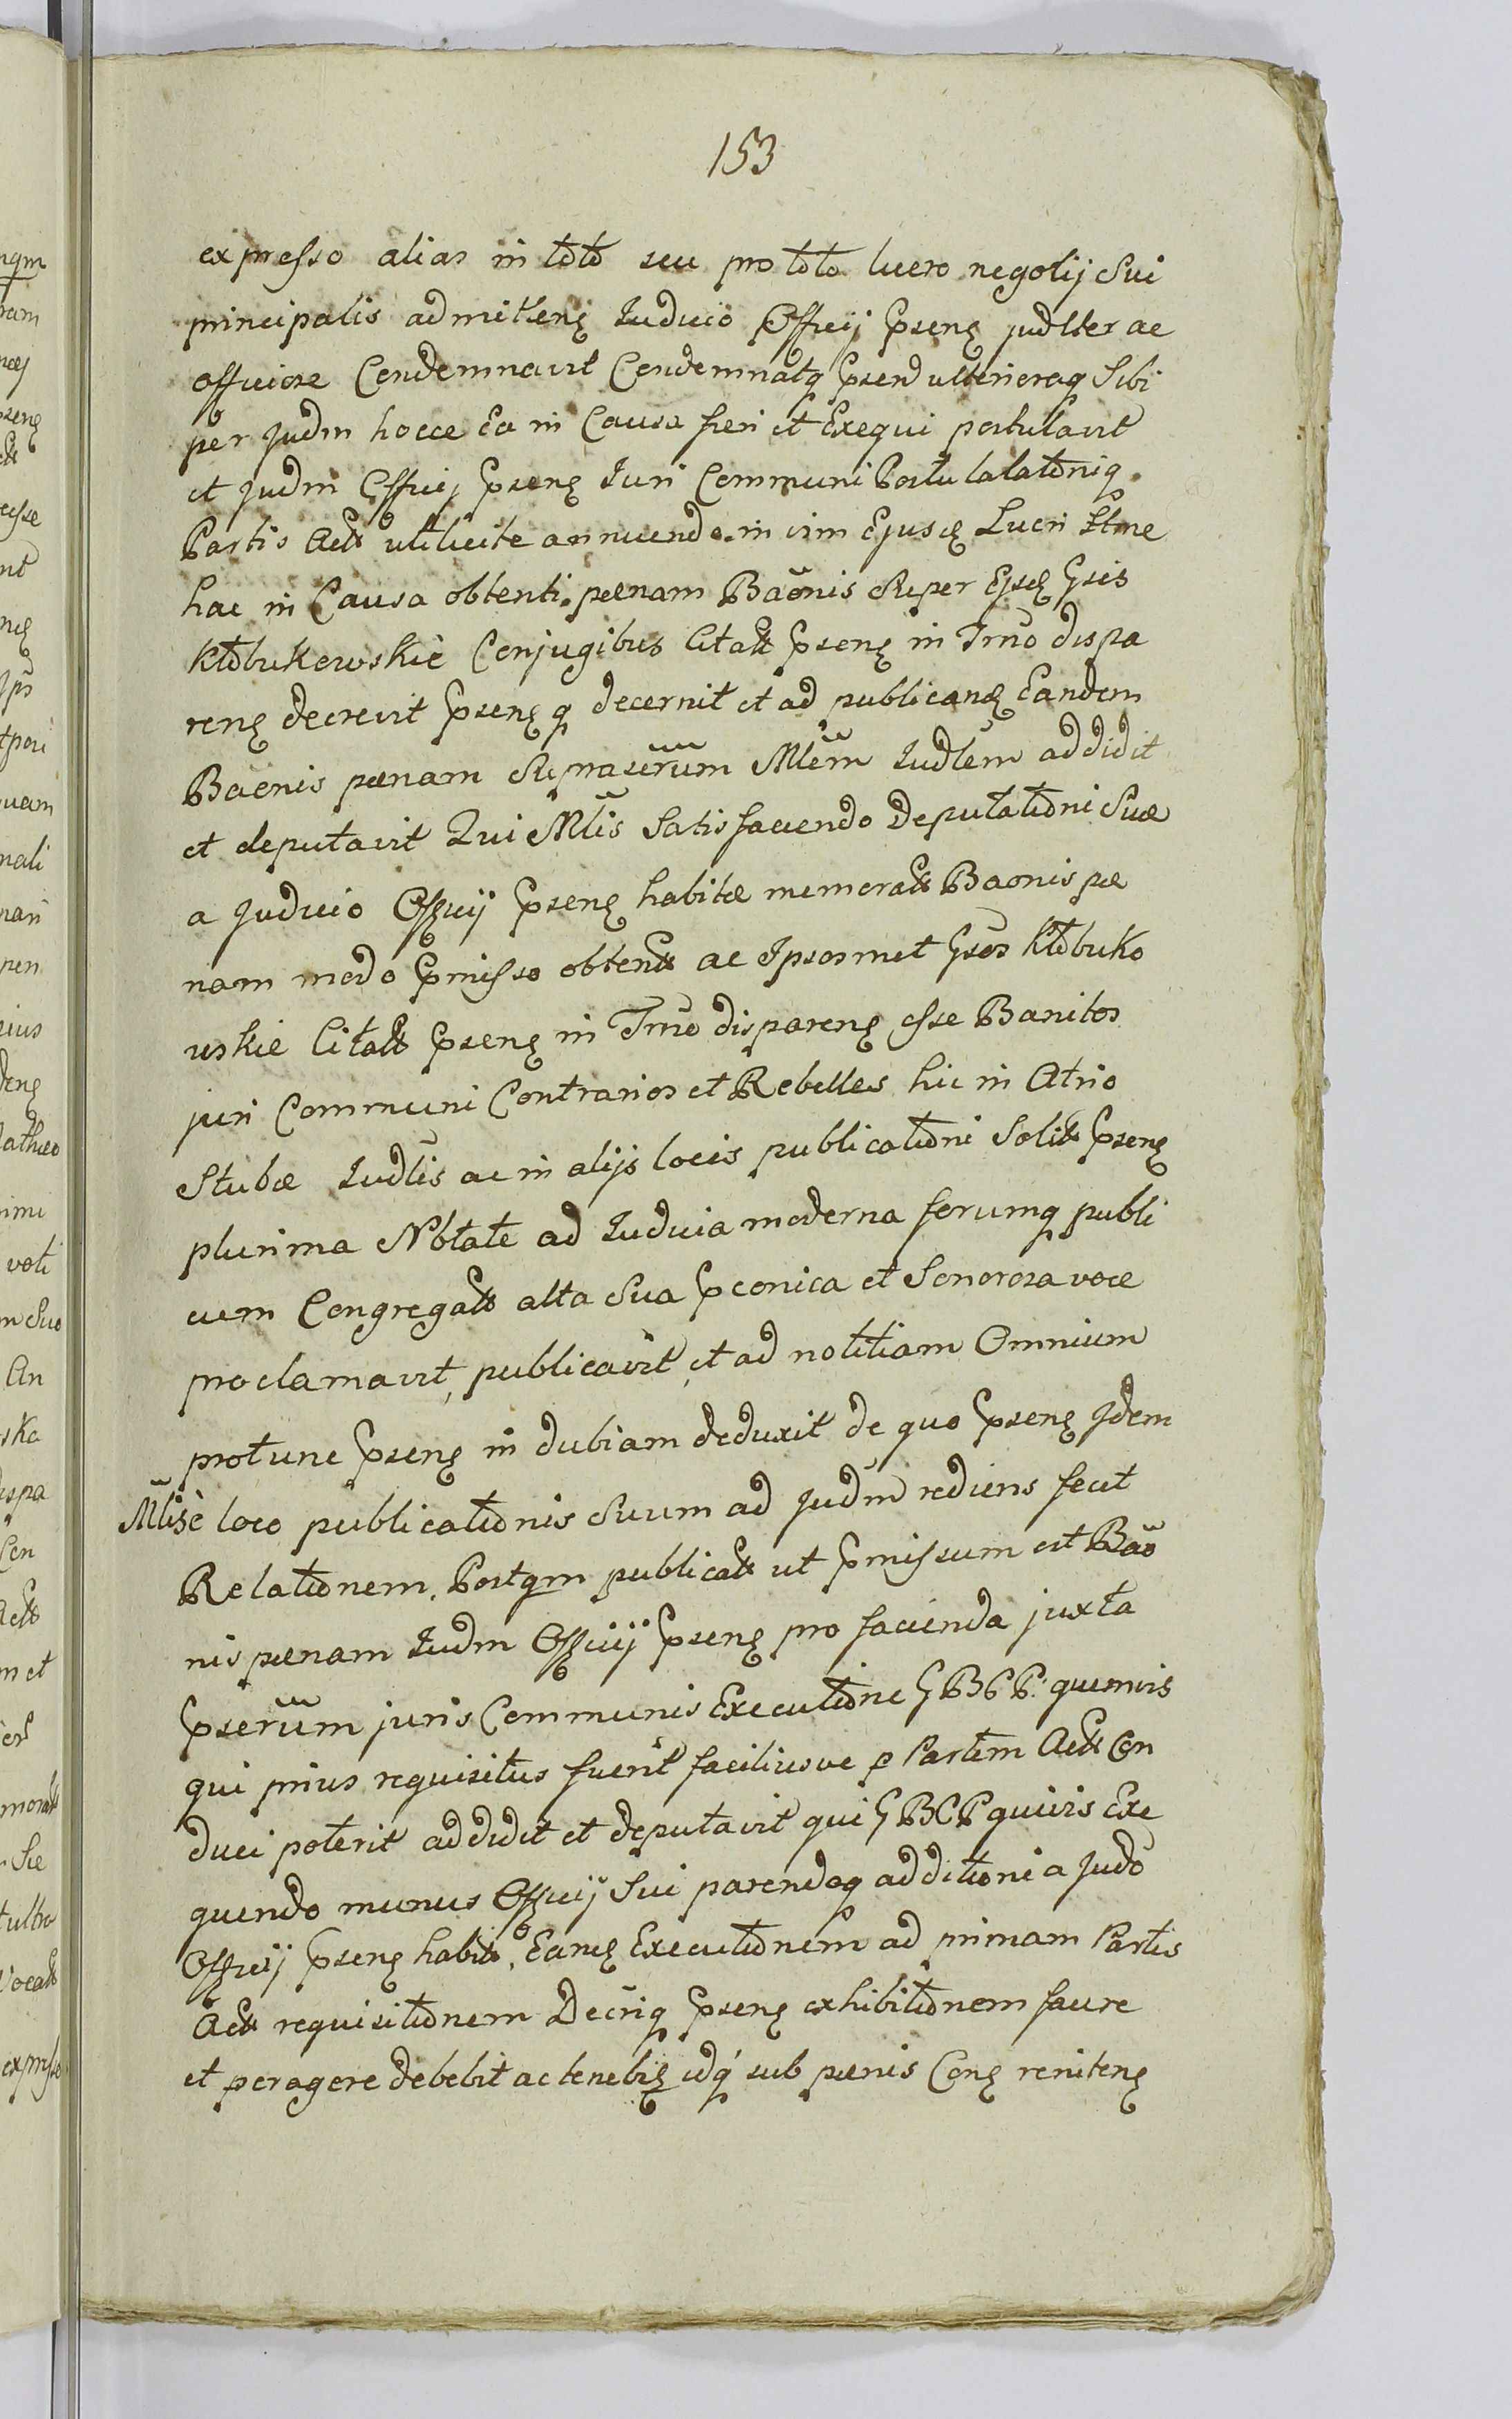 153
expresso alias in toto seu pro toto lucro negotij Sui
principalis admitten Judicio Officij Psen judlter ac
officiose Condemnavit Condemnatq Psend ulterioraq Sibi
per Judm hocce Ea in Causa fieri et Exequi postulavit
et Judm Officij Psen Juri Communi Postulalationiq
Partis Act uti licite annuendo in vim Ejusd Lucri Stme
hac in Causa obtenti pœnam Baonis Super Ejsd Gsis
Kłobukowskie Conjugibus Citat Psen in Trno dispa
ren decrevit Psenq decernit et ad publicand Eandem
Baonis pœnam Suprasrum Mlem Judlem addidit
et deputavit Qui Mlis Satisfaciendo Deputationi Suæ
a Judicio Officij Psen habitæ memorat Baonis pœ
nam modo Pmisso obtent ac Ipsosmet Gsos Kłobuko
wskie Citat Psen in Trno disparen esse Banitos
juri Communi Contrarios et Rebelles hic in Atrio
Stubæ Judlis ac in alijs locis publicationi Solit Psen
plurima Nobtate ad Judicia moderna forumq publi
cum Congregat alta Sua Pconica et Sonorosa voce
proclamavit, publicavit, et ad notitiam Omnium
protunc Psen in dubiam deduxit de quo Psen Idem
Mlis è loco publicationis Suum ad Judm rediens fecit
Relationem. Postqm publicat ut Pmissum est Bao
nis pœnam Judm Officij Psen pro facienda juxta
Pserum juris Communis Executione G B C P. quemvis
qui prius requisitus fuerit faciliusve p Partem Act Con
duci poterit addidit et deputavit qui G B C P quivis Exe
quendo munus Officij Sui parendoq additioni a Judo
Officij Psen habit, Eand Executionem ad primam Partis
Act requisitionem Decriq Psen exhibitionem facere
et peragere debebit ac tenebit idq sub pœnis Con reniten